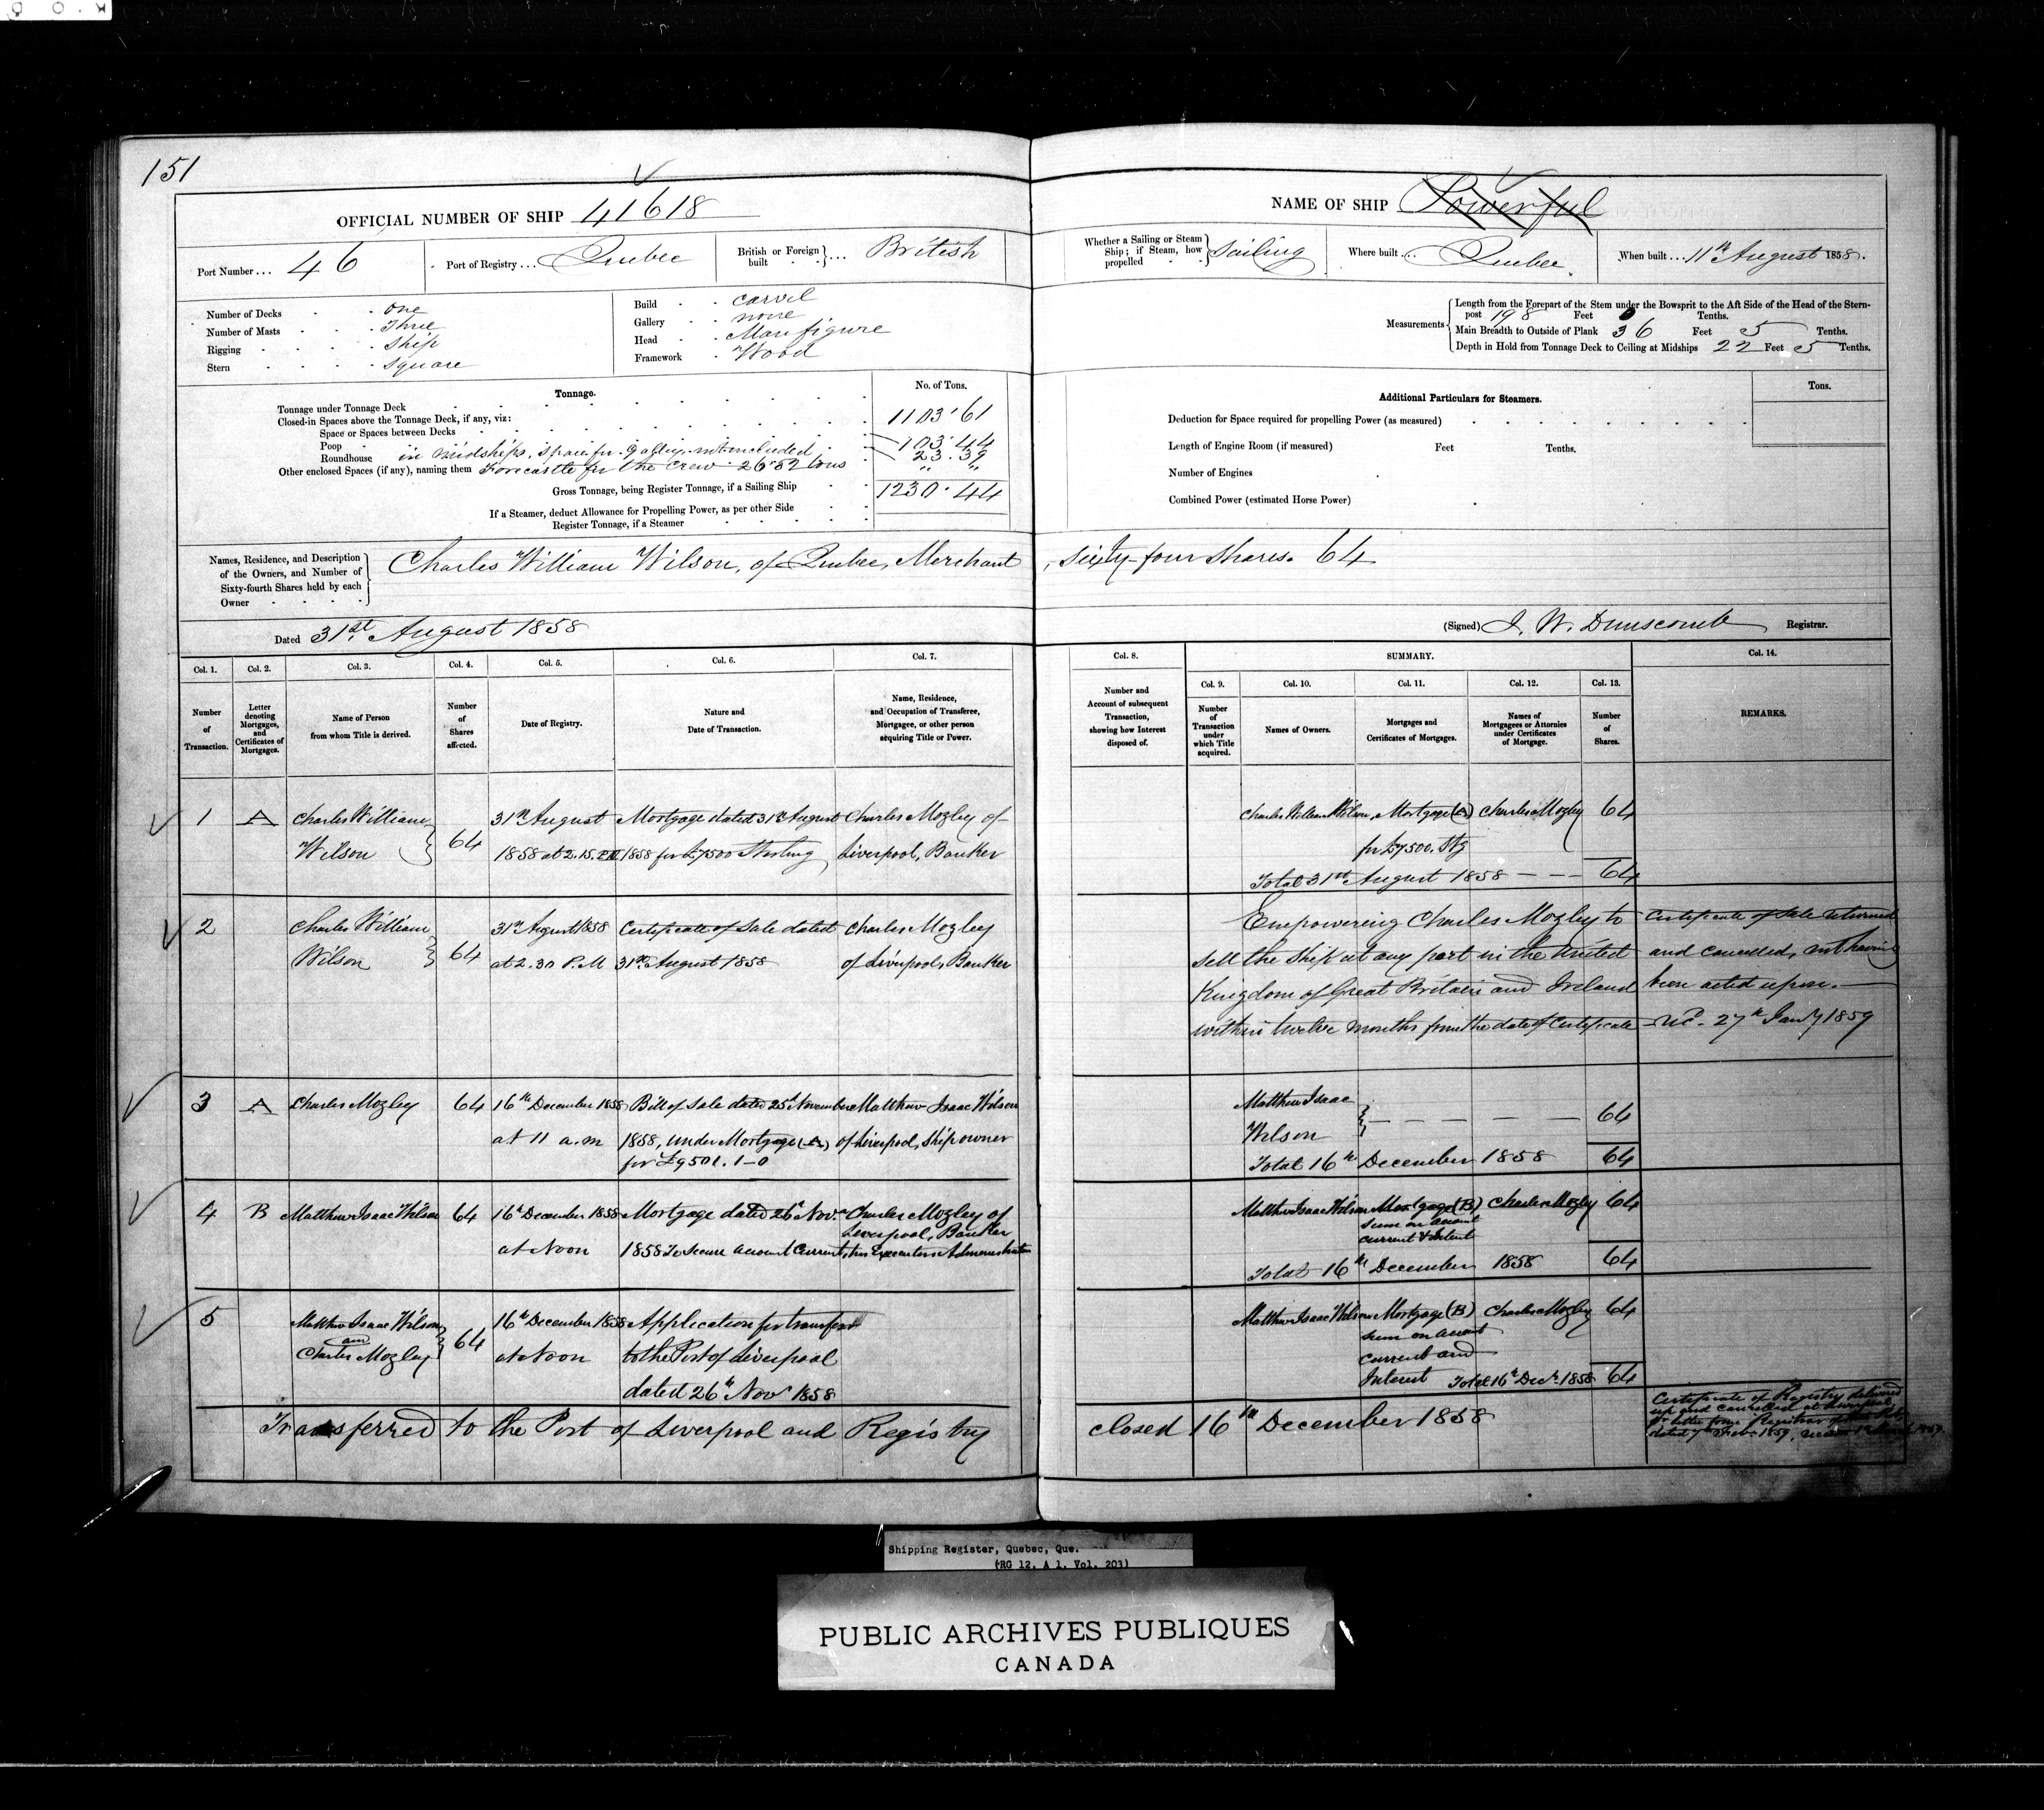 151
OFFICIAL NUMBER OF SHIP 41618
NAME OF SHIP Powerful
Port Number ... 46
Port of Registry ... Quebec
British or Foreign built } ... British
Whether a Sailing or Steam Ship; if Steam, how propelled } Sailing
Where built ... Quebec.
When built ... 11th August 1858.
Number of Decks . one
Number of Masts . Three
Rigging . Ship
Stern . Square
Build . carvel
Gallery . none
Head . Man figure
Framework . Wood
Measurements
Length from the Forepart of the Stem under the Bowsprit to the Aft Side of the Head of the Stern-
post 198 Feet 0 Tenths.
Main Breadth to Outside of Plank 36 Feet 5 Tenths.
Depth in Hold from Tonnage Deck to Ceiling at Midships 22 Feet 5 Tenths.
Tonnage.
No. of Tons.
Tonnage under Tonnage Deck 1103.61
Closed-in Spaces above the Tonnage Deck, if any, viz:
Space or Spaces between Decks
Poop 103.44
Roundhouse in midships, space for galley not included 23.39
Other enclosed Spaces (if any), naming them Forecastle for the crew 26.82 tons " "
Gross Tonnage, being Register Tonnage, if a Sailing Ship 1230.44
If a Steamer, deduct Allowance for Propelling Power, as per other Side
Register Tonnage, if a Steamer
Additional Particulars for Steamers.
Tons.
Deduction for Space required for propelling Power (as measured)
Length of Engine Room (if measured) Feet Tenths.
Number of Engines
Combined Power (estimated Horse Power)
Names, Residence, and Description
of the Owners, and Number of
Sixty-fourth Shares held by each
Owner
Charles William Wilson, of Quebec, Merchant, Sixty-four Shares. 64
Dated 31st August 1858
(Signed) J. W. Dunscomb Registrar.
Col. 1. Col. 2. Col. 3. Col. 4. Col. 5. Col. 6. Col. 7. Col. 8. SUMMARY. Col. 14.
Col. 9. Col. 10. Col. 11. Col. 12. Col. 13.
Number of Transaction.
Letter denoting Mortgages, and Certificates of Mortgages.
Name of Person from whom Title is derived.
Number of Shares affected.
Date of Registry.
Nature and Date of Transaction.
Name, Residence, and Occupation of Transferee, Mortgagee, or other person acquiring Title or Power.
Number and Account of subsequent Transaction, showing how Interest disposed of.
Number of Transaction under which Title acquired.
Names of Owners.
Mortgages and Certificates of Mortgages.
Names of Mortgagees or Attornies under Certificates of Mortgage.
Number of Shares.
REMARKS.
1 A Charles William 31st August Mortgage dated 31st August Charles Mozley of
Wilson 64 1858 at 2.15. PM 1858 for £7500 Sterling Liverpool, Banker
Charles William Wilson, Mortgage (A) Charles Mozley 64
for £7500. Stg
Total 31st August 1858 - - - 64
2 Charles William 31st August 1858 Certificate of Sale dated Charles Mozley
Wilson 64 at 2.30 P.M 31st August 1858 of Liverpool, Banker
Empowering Charles Mozley to
sell the Ship at any port in the United
Kingdom of Great Britain and Ireland
within twelve months from the date of Certificate
Certificate of Sale returned
and cancelled, not having
been acted upon.
27th Jany 1859
3 A Charles Mozley 64 16th December 1858 Bill of Sale dated 25th November Matthew Isaac Wilson
at 11 a.m 1858, under Mortgage (A) of Liverpool, Ship owner
for £9501. 1-0
Matthew Isaac
Wilson - - - - 64
Total 16th December 1858 64
4 B Matthew Isaac Wilson 64 16th December 1858 Mortgage dated 26th Nov. Charles Mozley of
Liverpool, Banker
at Noon 1858 To Secure account Current, his Executors Administrators
Matthew Isaac Wilson Mortgage (B) Charles Mozley 64
sum on account
current & Intent
Total 16th December 1858 64
5 Matthew Isaac Wilson 16th December 1858 Application for transfer
and 64
Charles Mozley at Noon to the Port of Liverpool
dated 26th Nov 1858
Matthew Isaac Wilson Mortgage (B) Charles Mozley 64
sum on account
current and
Interest Total 16th Decr. 1858 64
Transferred to the Port of Liverpool and Registry closed 16th December 1858
Certificate of Registry delivered
up and cancelled at Liverpool,
letter from Registrar
dated 7th Feb. 1859,
Shipping Register, Quebec, Que.
(RG 12, A 1, Vol. 203)
PUBLIC ARCHIVES PUBLIQUES
CANADA